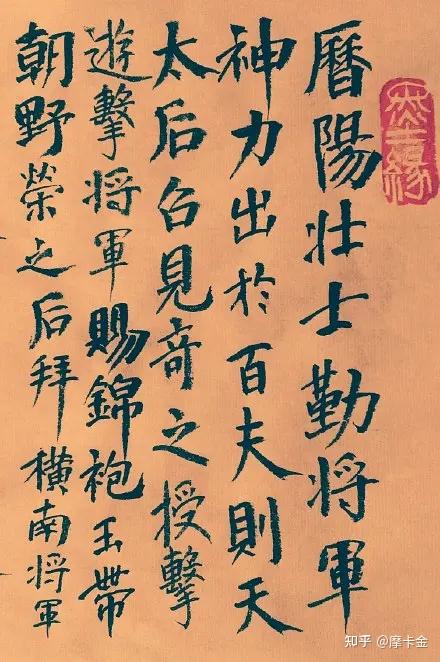 曆陽壮士勤将軍
神力出於百夫則天
太后召見奇之授擊
遊擊将軍賜錦袍玉帶
朝野榮之后拜橫南将軍
知乎 @摩卡金